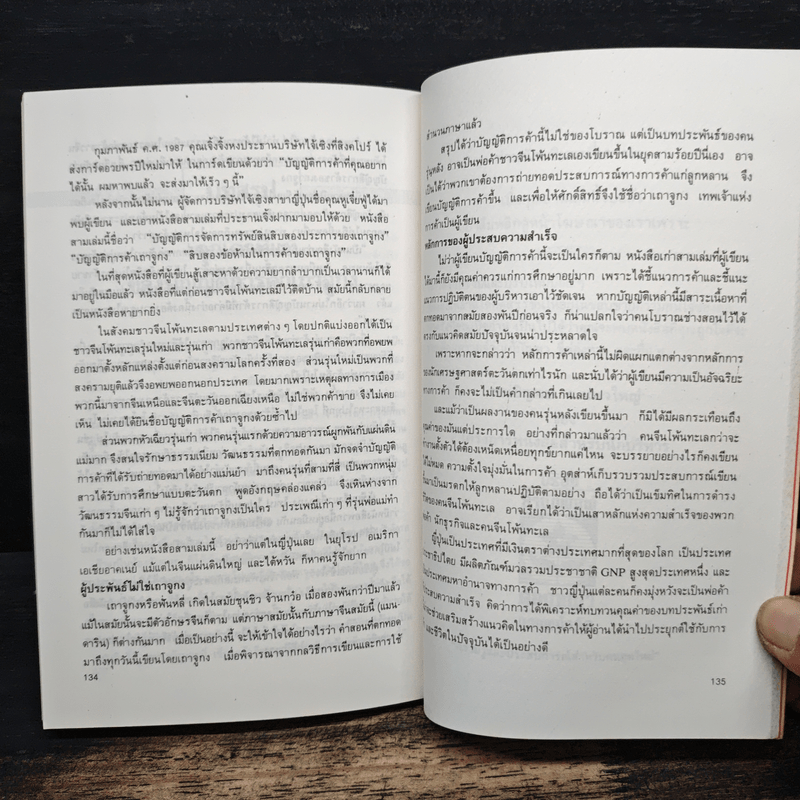 กุมภาพันธ์ ค.ศ. 1987 คุณเจิ้งจิ้งหงประธานบริษัทไจ้เซิงที่สิงคโปร์ ได้
ส่งการ์ดอวยพรปีใหม่มาให้ ในการ์ดเขียนด้วยว่า "บัญญัติการค้าที่คุณอยาก
ได้นั้น ผมหาพบแล้ว จะส่งมาให้เร็ว ๆ นี้"
หลังจากนั้นไม่นาน ผู้จัดการบริษัทไจ้เซิงสาขาญี่ปุ่นชื่อคุณหูเจี่ยฟู่ได้มา
พบผู้เขียน และเอาหนังสือสามเล่มที่ประธานเจิ้งฝากมามอบให้ด้วย หนังสือ
สามเล่มนี้ชื่อว่า "บัญญัติการจัดการทรัพย์สินสิบสองประการของเถาจูกง"
"บัญญัติการค้าเถาจูกง" "สิบสองข้อห้ามในการค้าของเถาจูกง"
ในที่สุดหนังสือที่ผู้เขียนสู้เสาะหาด้วยความยากลำบากเป็นเวลานานก็ได้
มาอยู่ในมือแล้ว หนังสือที่แต่ก่อนชาวจีนโพ้นทะเลมีไว้ติดบ้าน สมัยนี้กลับกลาย
เป็นหนังสือหายากยิ่ง
ในสังคมชาวจีนโพ้นทะเลตามประเทศต่าง ๆ โดยปกติแบ่งออกได้เป็น
ชาวจีนโพ้นทะเลรุ่นใหม่และรุ่นเก่า พวกชาวจีนโพ้นทะเลรุ่นเก่าคือพวกที่อพยพ
ออกมาตั้งหลักแหล่งตั้งแต่ก่อนสงครามโลกครั้งที่สอง ส่วนรุ่นใหม่เป็นพวกที่
สงครามยุติแล้วจึงอพยพออกนอกประเทศ โดยมากเพราะเหตุผลทางการเมือง
พวกนี้มาจากจีนเหนือและจีนตะวันออกเฉียงเหนือ ไม่ใช่พวกค้าขาย จึงไม่เคย
เห็น ไม่เคยได้ยินชื่อบัญญัติการค้าเถาจูกงด้วยซ้ำไป
ส่วนพวกหัวเฉียวรุ่นเก่า พวกคนรุ่นแรกด้วยความอาวรณ์ผูกพันกับแผ่นดิน
แม่มาก จึงสนใจรักษาธรรมเนียม วัฒนธรรมที่ตกทอดกันมา มักจดจำบัญญัติ
การค้าที่ได้รับถ่ายทอดมาได้อย่างแม่นยำ มาถึงคนรุ่นที่สามที่สี่ เป็นพวกหนุ่ม
สาวได้รับการศึกษาแบบตะวันตก พูดอังกฤษคล่องแคล่ว จึงเหินห่างจาก
วัฒนธรรมจีนเก่า ๆ ไม่รู้จักว่าเถาจูกงเป็นใคร ประเพณีเก่า ๆ ที่รุ่นพ่อแม่ทำ
กันมาก็ไม่ได้ใส่ใจ
อย่างเช่นหนังสือสามเล่มนี้ อย่าว่าแต่ในญี่ปุ่นเลย ในยุโรป อเมริกา
เอเชียอาคเนย์ แม้แต่ในจีนแผ่นดินใหญ่ และไต้หวัน ก็หาคนรู้จักยาก
ผู้ประพันธ์ไม่ใช่เถาจูกง
เถาจูกงหรือฟ่านหลี่ เกิดในสมัยชุนชิว จ้านกว๋อ เมื่อสองพันกว่าปีมาแล้ว
แม้ในสมัยนั้นจะมีตัวอักษรจีนก็ตาม แต่ภาษาสมัยนั้นกับภาษาจีนสมัยนี้ (แมน-
ดาริน) ก็ต่างกันมาก เมื่อเป็นอย่างนี้ จะให้เข้าใจได้อย่างไรว่า คำสอนที่ตกทอด
มาถึงทุกวันนี้เขียนโดยเถาจูกง เมื่อพิจารณาจากกลวิธีการเขียนและการใช้
134
สำนวนภาษาแล้ว
สรุปได้ว่าบัญญัติการค้านี้ไม่ใช่ของโบราณ แต่เป็นบทประพันธ์ของคน
รุ่นหลัง อาจเป็นพ่อค้าชาวจีนโพ้นทะเลเองเขียนขึ้นในยุคสามร้อยปีนี่เอง อาจ
เป็นได้ว่าพวกเขาต้องการถ่ายทอดประสบการณ์ทางการค้าแก่ลูกหลาน จึง
เขียนบัญญัติการค้าขึ้น และเพื่อให้ศักดิ์สิทธิ์จึงใช้ชื่อว่าเถาจูกง เทพเจ้าแห่ง
การค้าเป็นผู้เขียน
หลักการของผู้ประสบความสำเร็จ
ไม่ว่าผู้เขียนบัญญัติการค้านี้จะเป็นใครก็ตาม หนังสือเก่าสามเล่มที่ผู้เขียน
ได้มานี้ก็ยังมีคุณค่าควรแก่การศึกษาอยู่มาก เพราะได้ชี้แนวการค้าและชี้แนะ
แนวการปฏิบัติตนของผู้บริหารเอาไว้ชัดเจน หากบัญญัติเหล่านี้มีสาระเนื้อหาที่
ตกทอดมาจากสมัยสองพันปีก่อนจริง ก็น่าแปลกใจว่าคนโบราณช่างสอนไว้ได้
ตรงกับแนวคิดสมัยปัจจุบันจนน่าประหลาดใจ
เพราะหากจะกล่าวว่า หลักการค้าเหล่านี้ไม่ผิดแผกแตกต่างจากหลักการ
ของนักเศรษฐศาสตร์ตะวันตกเท่าไรนัก และนับได้ว่าผู้เขียนมีความเป็นอัจฉริยะ
ทางการค้า ก็คงจะไม่เป็นคำกล่าวที่เกินเลยไป
และแม้ว่าเป็นผลงานของคนรุ่นหลังเขียนขึ้นมา ก็มิได้มีผลกระเทือนถึง
คุณค่าของมันแต่ประการใด อย่างที่กล่าวมาแล้วว่า คนจีนโพ้นทะเลกว่าจะ
ทำงานตั้งตัวได้ต้องเหน็ดเหนื่อยทุกข์ยากแค่ไหน จะบรรยายอย่างไรก็คงเขียน
ได้ไม่หมด ความตั้งใจมุ่งมั่นในการค้า อุตส่าห์เก็บรวบรวมประสบการณ์เขียน
ไว้เป็นมรดกให้ลูกหลานปฏิบัติตามอย่าง ถือได้ว่าเป็นเข็มทิศในการดำรง
ชีวิตของคนจีนโพ้นทะเล อาจเรียกได้ว่าเป็นเสาหลักแห่งความสำเร็จของพวก
พ่อค้า นักธุรกิจและคนจีนโพ้นทะเล
ญี่ปุ่นเป็นประเทศที่มีเงินตราต่างประเทศมากที่สุดของโลก เป็นประเทศ
ประชาธิปไตย มีผลิตภัณฑ์มวลรวมประชาชาติ GNP สูงสุดประเทศหนึ่ง และ
เป็นประเทศมหาอำนาจทางการค้า ชาวญี่ปุ่นแต่ละคนก็คงมุ่งหวังจะเป็นพ่อค้า
ประสบความสำเร็จ คิดว่าการได้พิเคราะห์ทบทวนคุณค่าของบทประพันธ์เก่า
จะช่วยเสริมสร้างแนวคิดในทางการค้าให้ผู้อ่านได้นำไปประยุกต์ใช้กับการ
และชีวิตในปัจจุบันได้เป็นอย่างดี
135